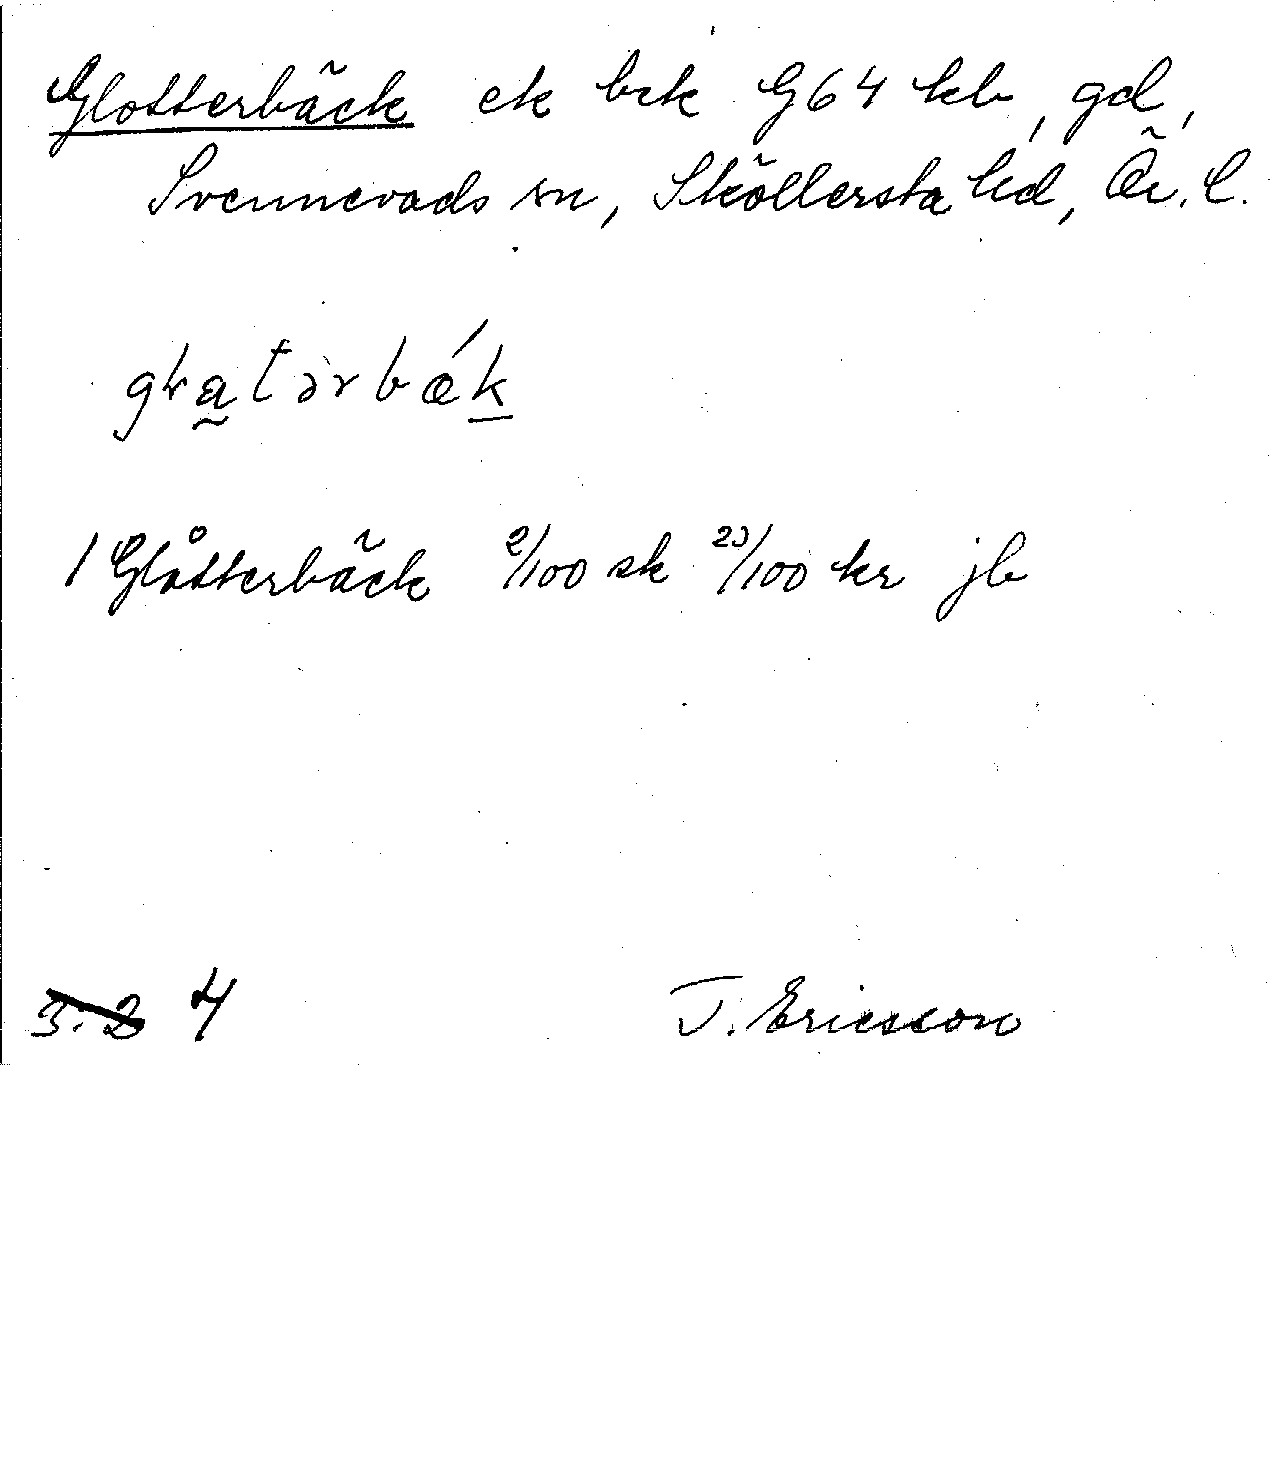 Glotterbäck ek bek G64 kb, gd,
Svennevads sn, Sköllersta hd, Ör. l.
1 Glåtterbäck 2/100 sk 23/100 kr jb
3.2 4 T. Ericsson